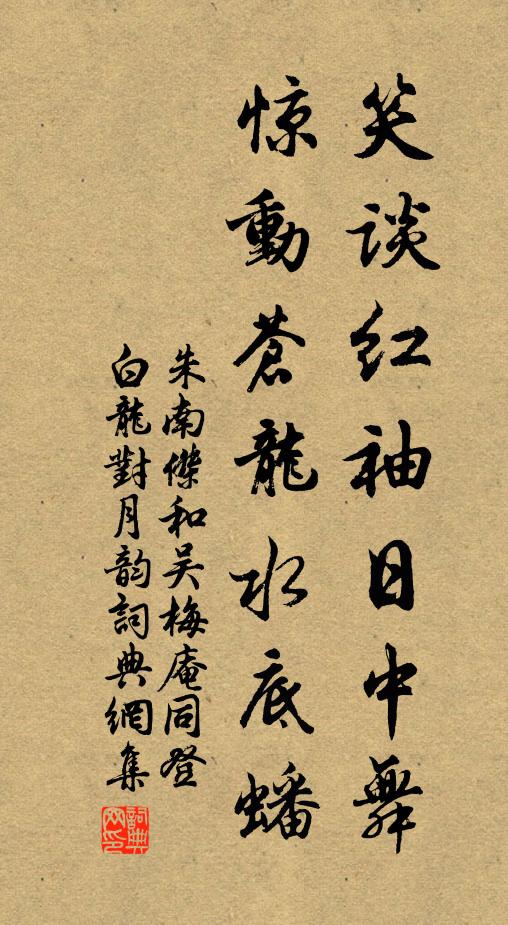 笑谈红袖日中舞
惊動蒼龍水底蟠
朱南傑和吴梅庵同登
白龍對月韵詞典網集
詞典网印